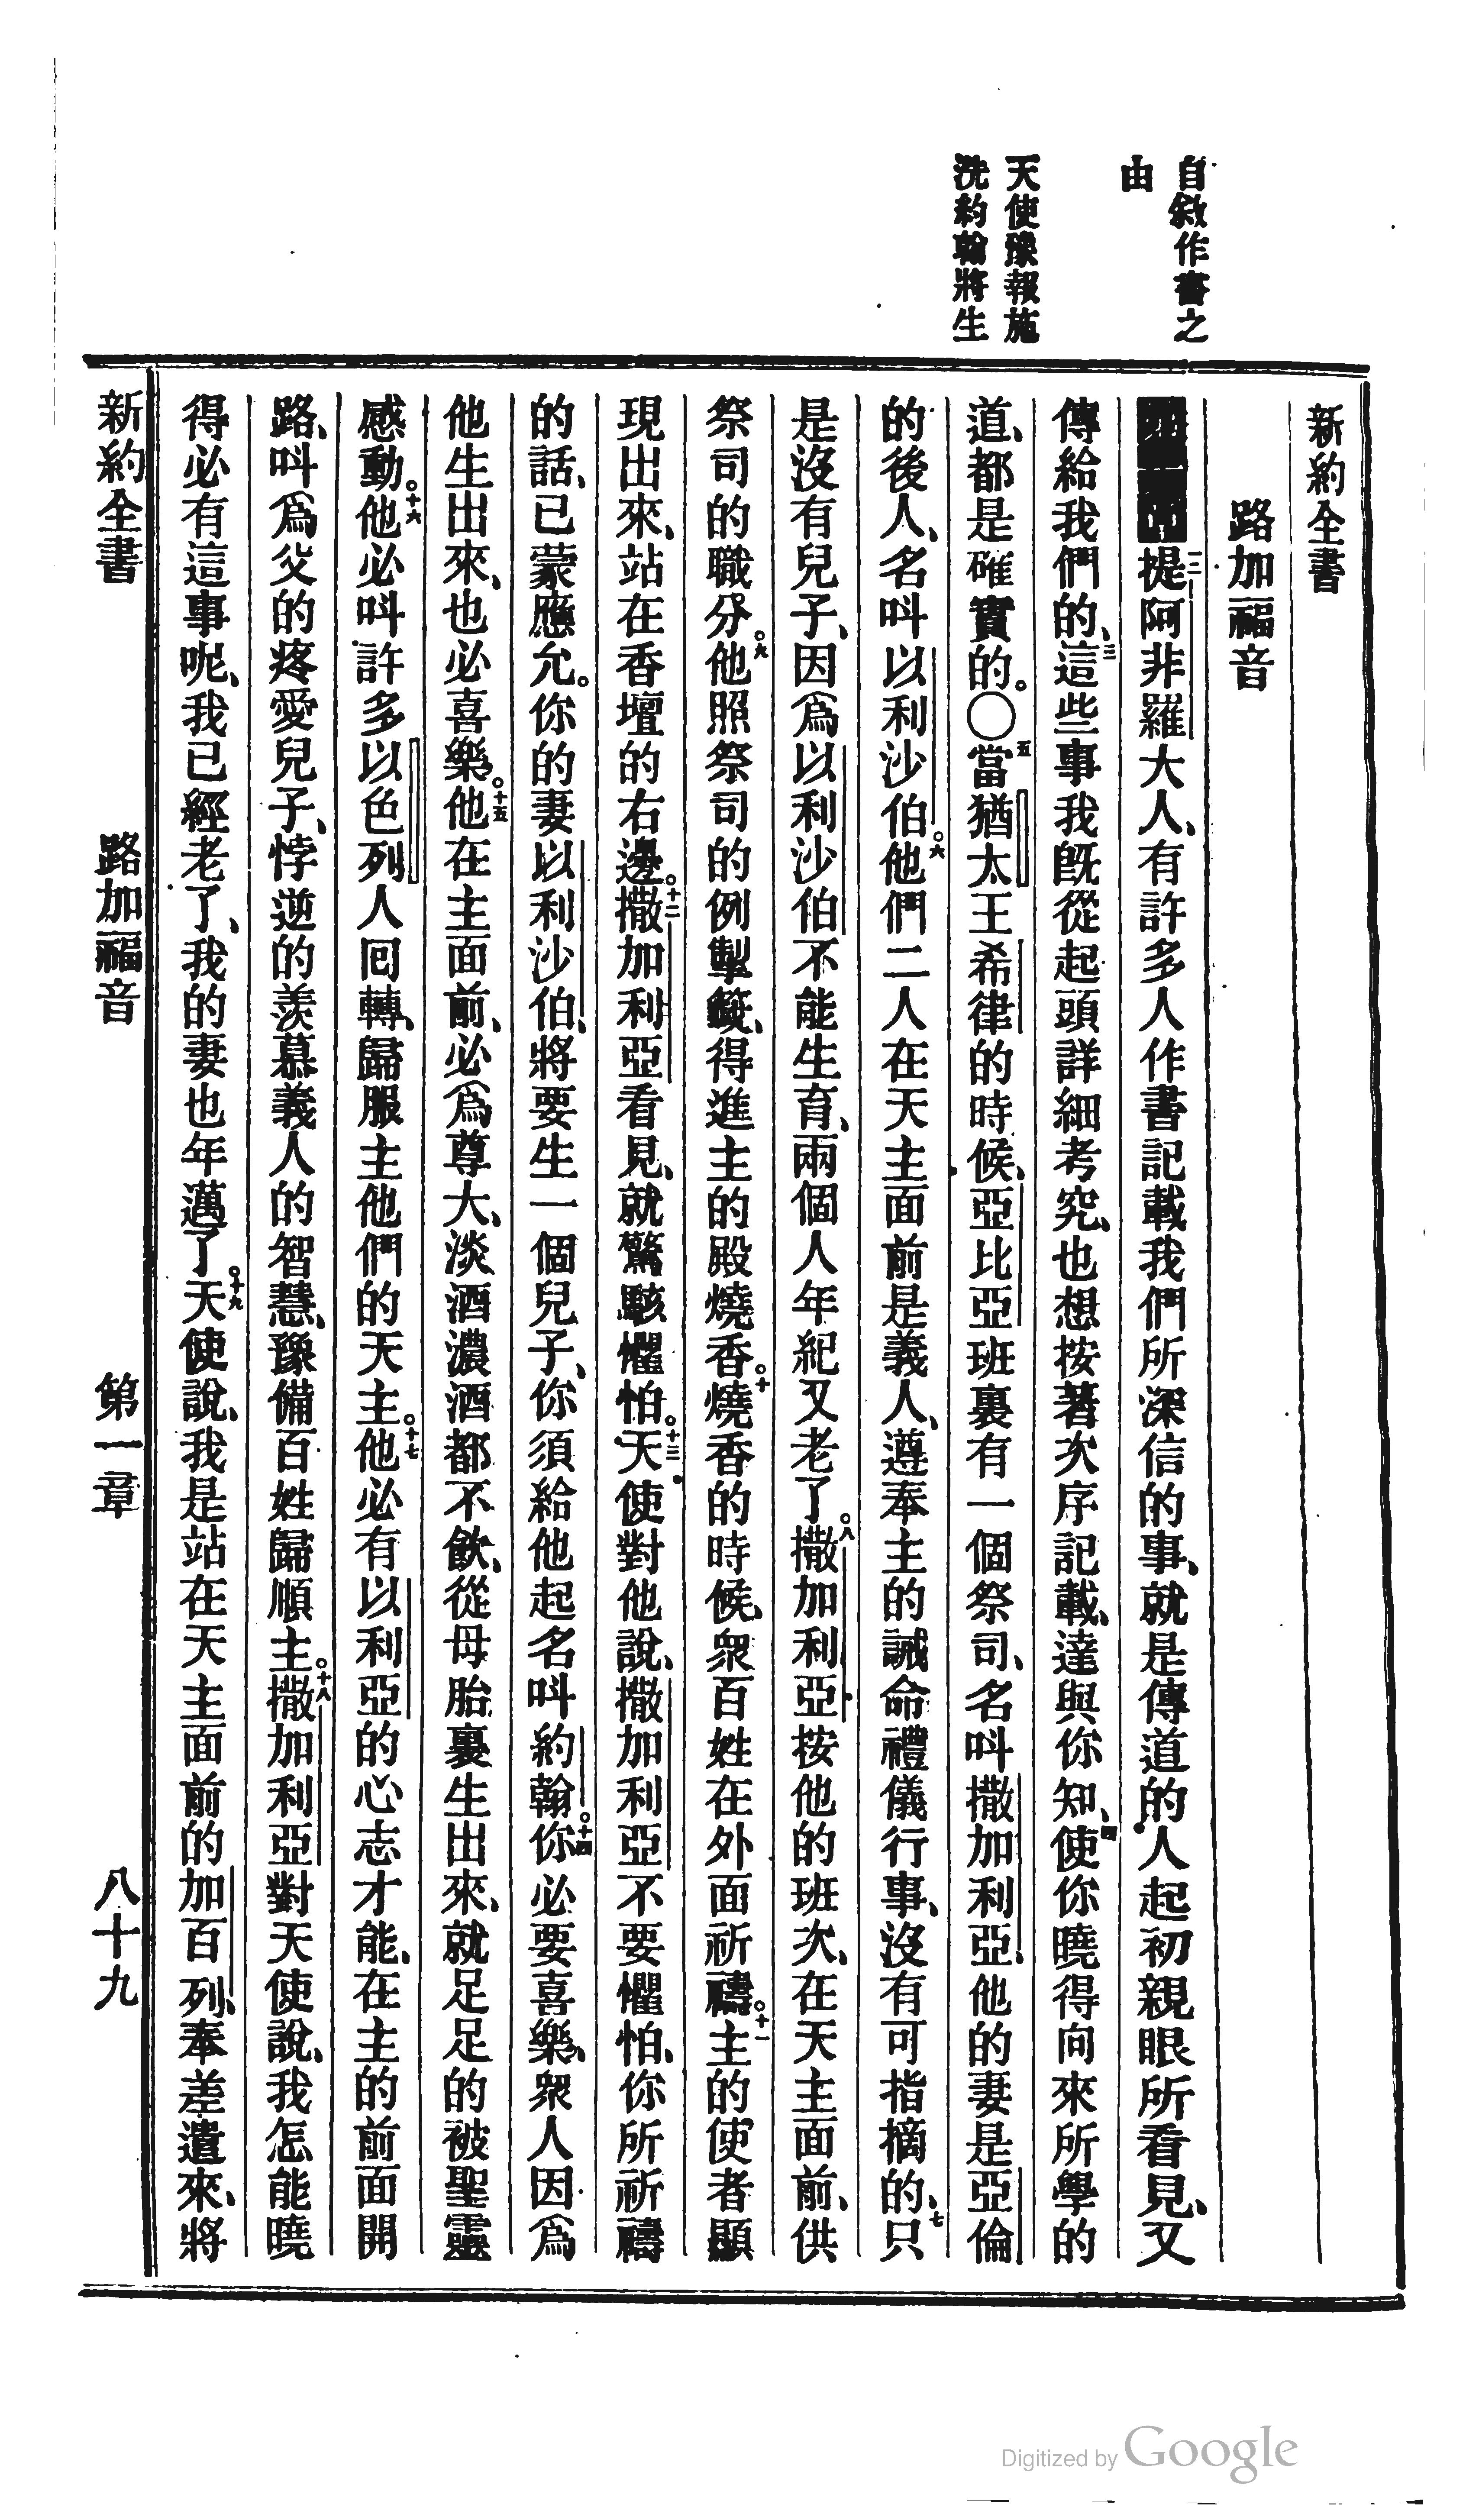 自敘作書之
由
天使豫報施
洗約翰將生
新約全書
路加福音
第一章提一二阿非羅大人、有許多人作書記載我們所深信的事、就是傳道的人起初親眼所看見、又
傳給我們的、三這些事我旣從起頭詳細考究、也想按著次序記載、達與你知、四使你曉得向來所學的
道、都是確實的。〇五當猶太王希律的時候、亞比亞班裏有一個祭司、名呌撒加利亞、他的妻是亞倫
的後人、名呌以利沙伯。六他們二人在天主面前是義人、遵奉主的誡命禮儀行事、沒有可指摘的、七只
是沒有兒子、因爲以利沙伯不能生育、兩個人年紀又老了。八撒加利亞按他的班次、在天主面前、供
祭司的職分。九他照祭司的例掣籤、得進主的殿燒香。十燒香的時候、衆百姓在外面祈禱。十一主的使者顯
現出來、站在香壇的右邊。十二撒加利亞看見、就驚駭懼怕。十三天使對他說、撒加利亞不要懼怕、你所祈禱
的話、已蒙應允。你的妻以利沙伯、將要生一個兒子、你須給他起名呌約翰。十四你必要喜樂、衆人因爲
他生出來、也必喜樂。十五他在主面前、必爲尊大、淡酒濃酒都不飲、從母胎裏生出來、就足足的被聖靈
感動。十六他必呌許多以色列人囘轉、歸服主他們的天主。十七他必有以利亞的心志才能、在主的前面開
路、呌爲父的疼愛兒子、悖逆的羨慕義人的智慧、豫備百姓歸順主。十八撒加利亞對天使說、我怎能曉
得必有這事呢、我已經老了、我的妻也年邁了。十九天使說、我是站在天主面前的加百列、奉差遣來、將
新約全書　路加福音　第一章　八十九
Digitized by Google